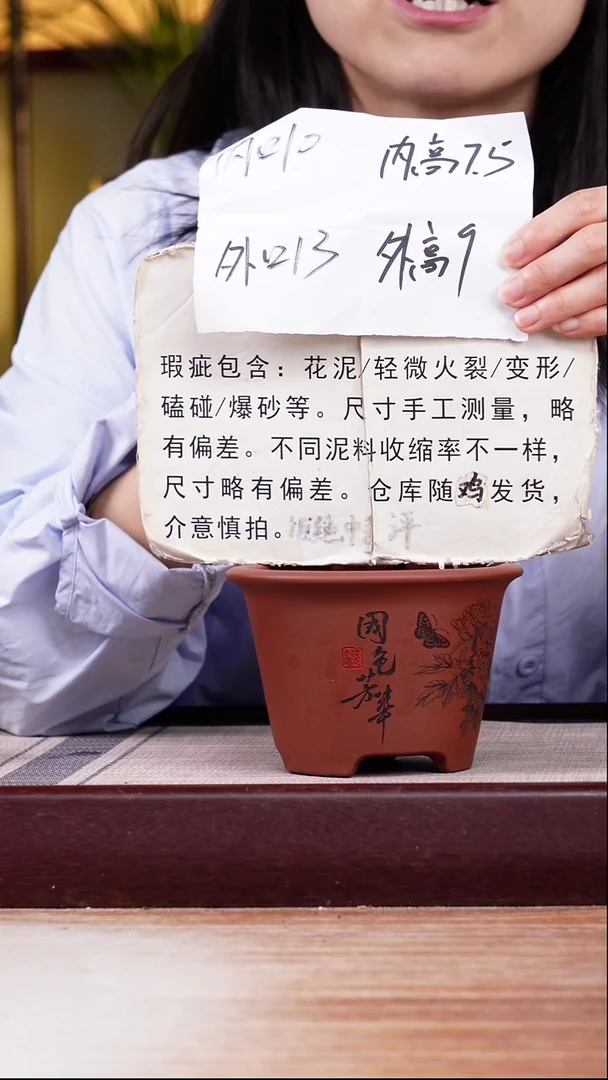 内口10 内高7.5
外口13 外高9
瑕疵包含：花泥/轻微火裂/变形/
磕碰/爆砂等。尺寸手工测量，略
有偏差。不同泥料收缩率不一样，
尺寸略有偏差。仓库随鸡发货，
介意慎拍。
國色芳華